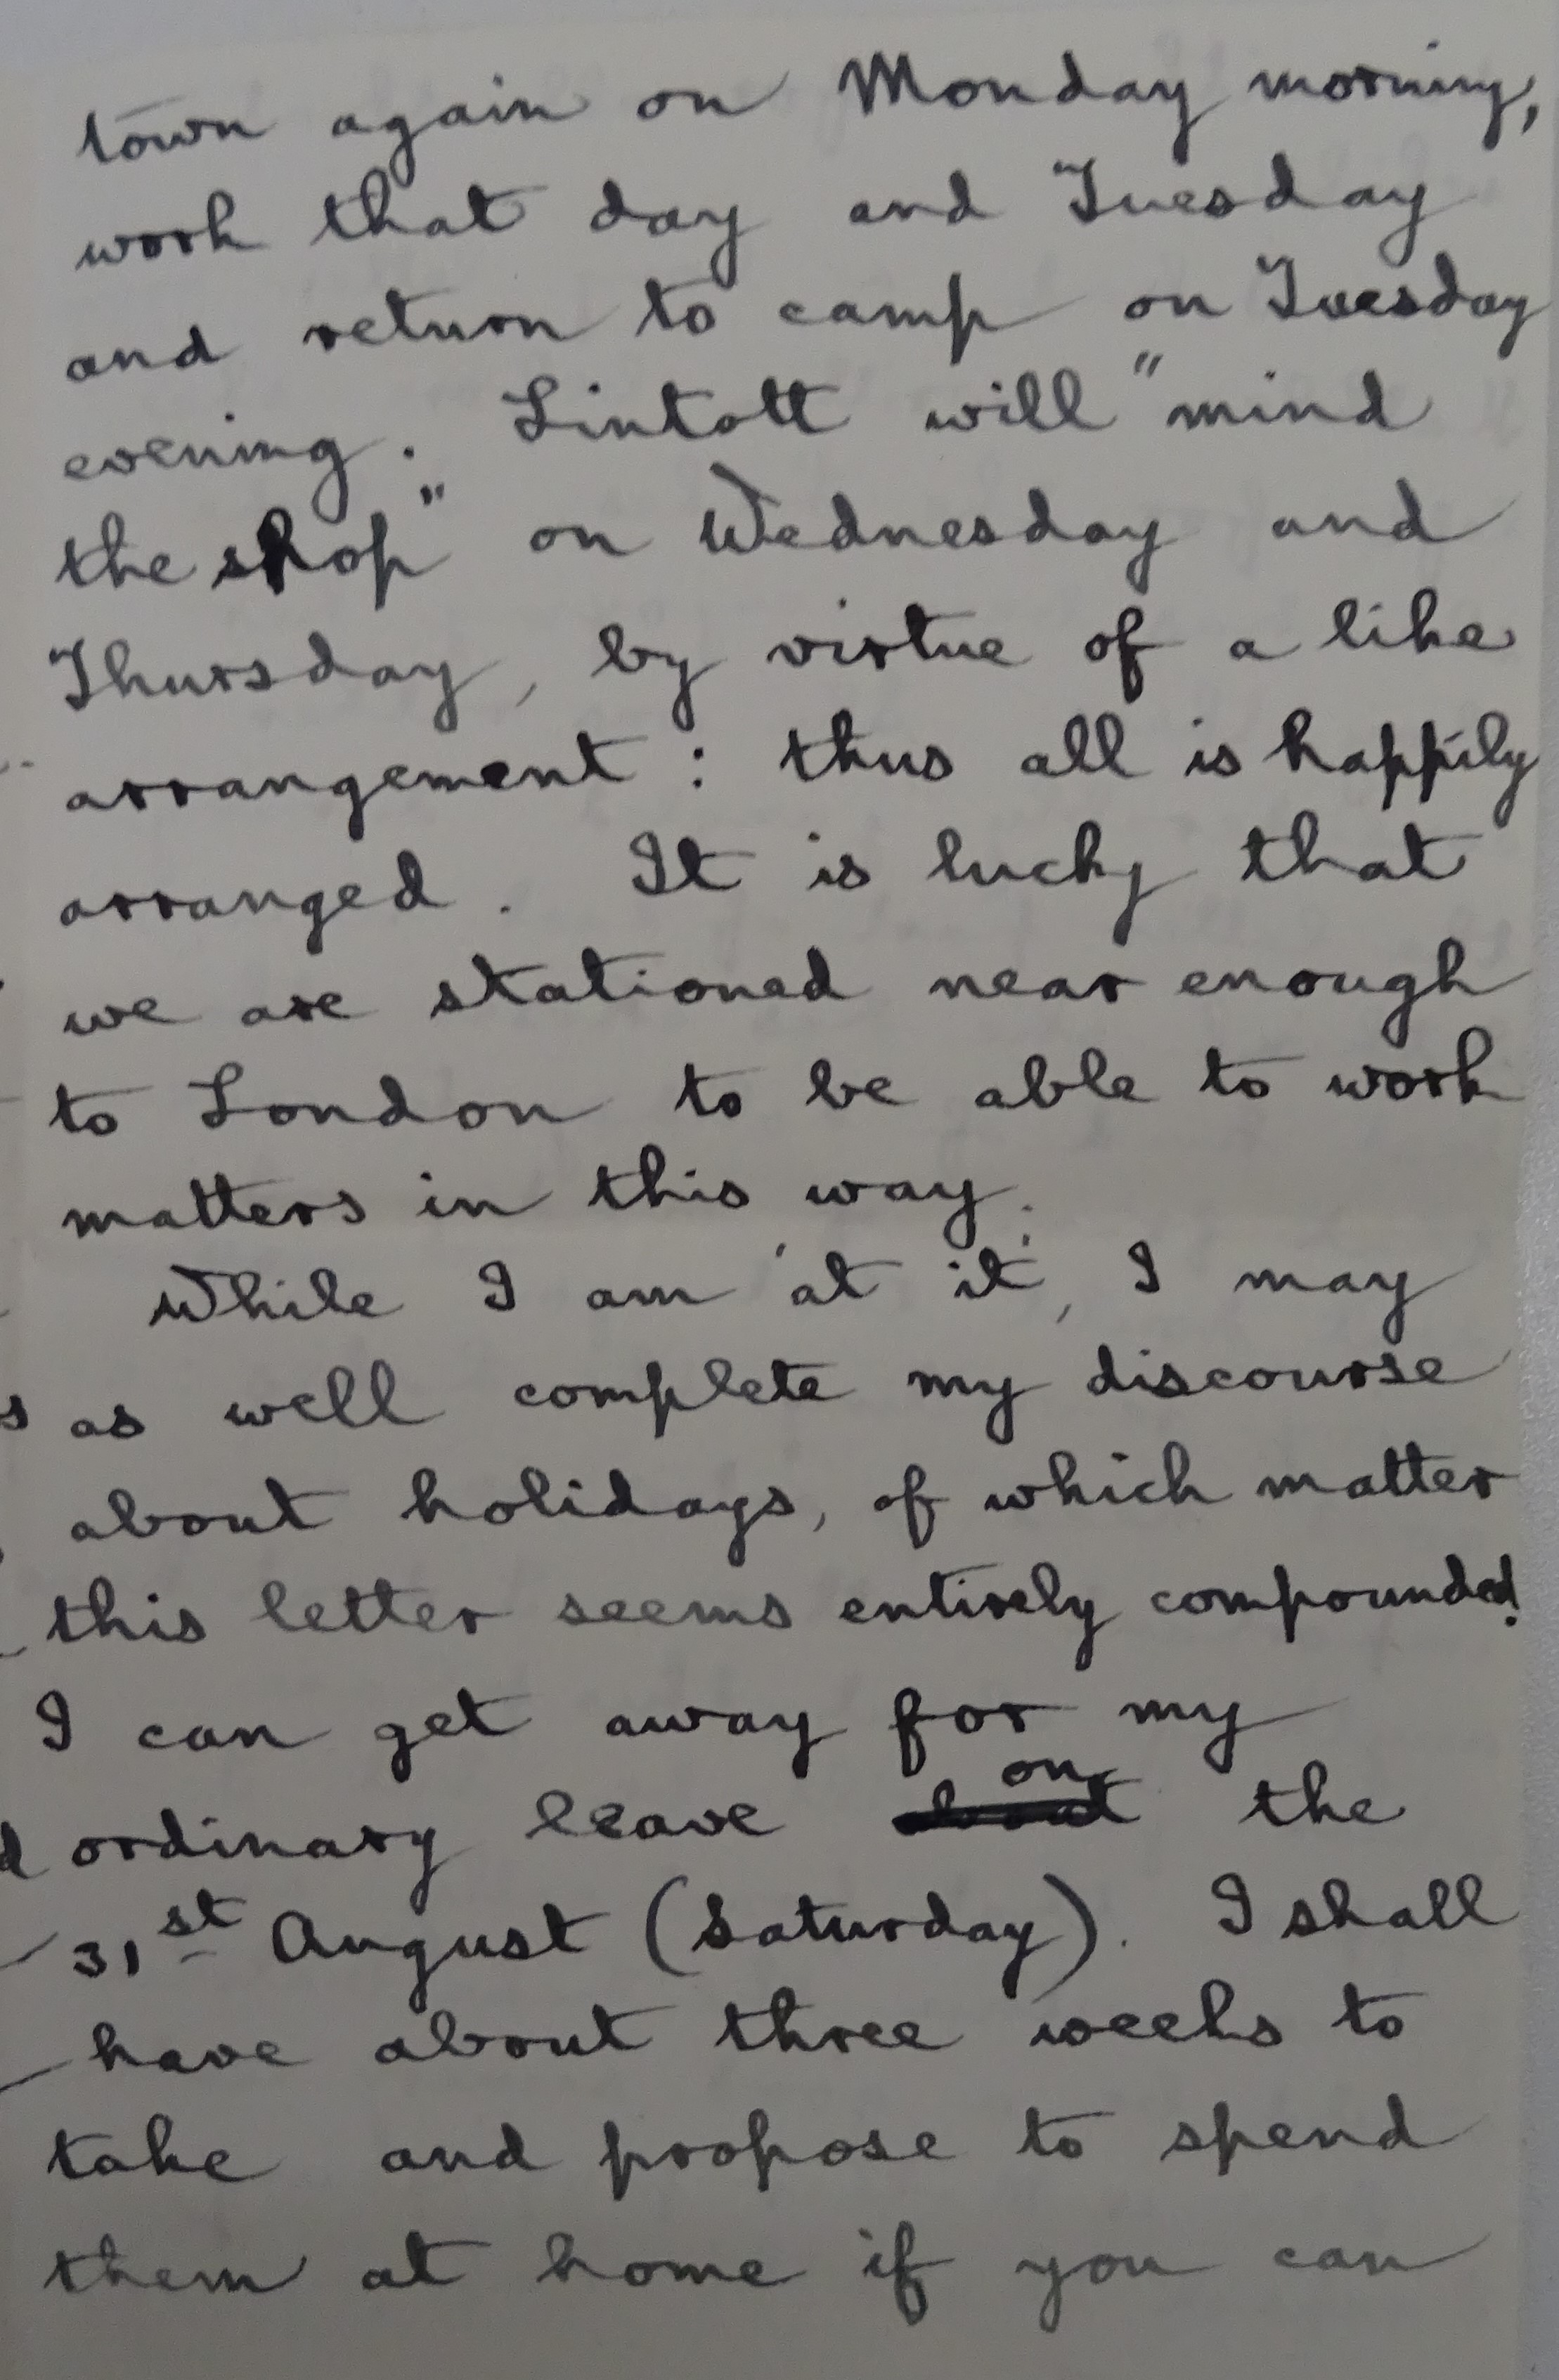 town again on Monday morning,
work that day and Tuesday
and return to camp on Tuesday
evening. Lintott will "mind
the shop" on Wednesday and
Thursday, by virtue of a like
arrangement: thus all is happily
arranged. It is lucky that
we are stationed near enough
to London to be able to work
matters in this way.
While I am 'at it', I may
as well complete my discourse
about holidays, of which matter
this letter seems entirely compounded!
I can get away for my
ordinary leave on the
31st August (Saturday). I shall
have about three weeks to
take and propose to spend
them at home if you can